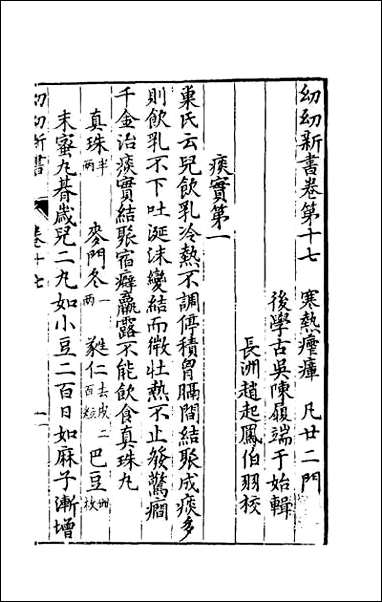 幼幼新書卷第十七　寒熱瘧瘴　凡廿二門
後學古吳陳履端于始輯
長洲趙起鳳伯羽校
痰實第一
巢氏云兒飲乳冷熱不調停積胷膈間結聚成痰多
則飲乳不下吐涎沫變結而微壯熱不止發驚癇
千金治痰實結聚宿癖羸露不能飲食真珠丸
真珠半兩　麥門冬一兩　蕤仁去皮二百粒　巴豆卌枚
末蜜丸朞歲兒二丸如小豆二百日如麻子漸增
幼幼新書　卷十七　一